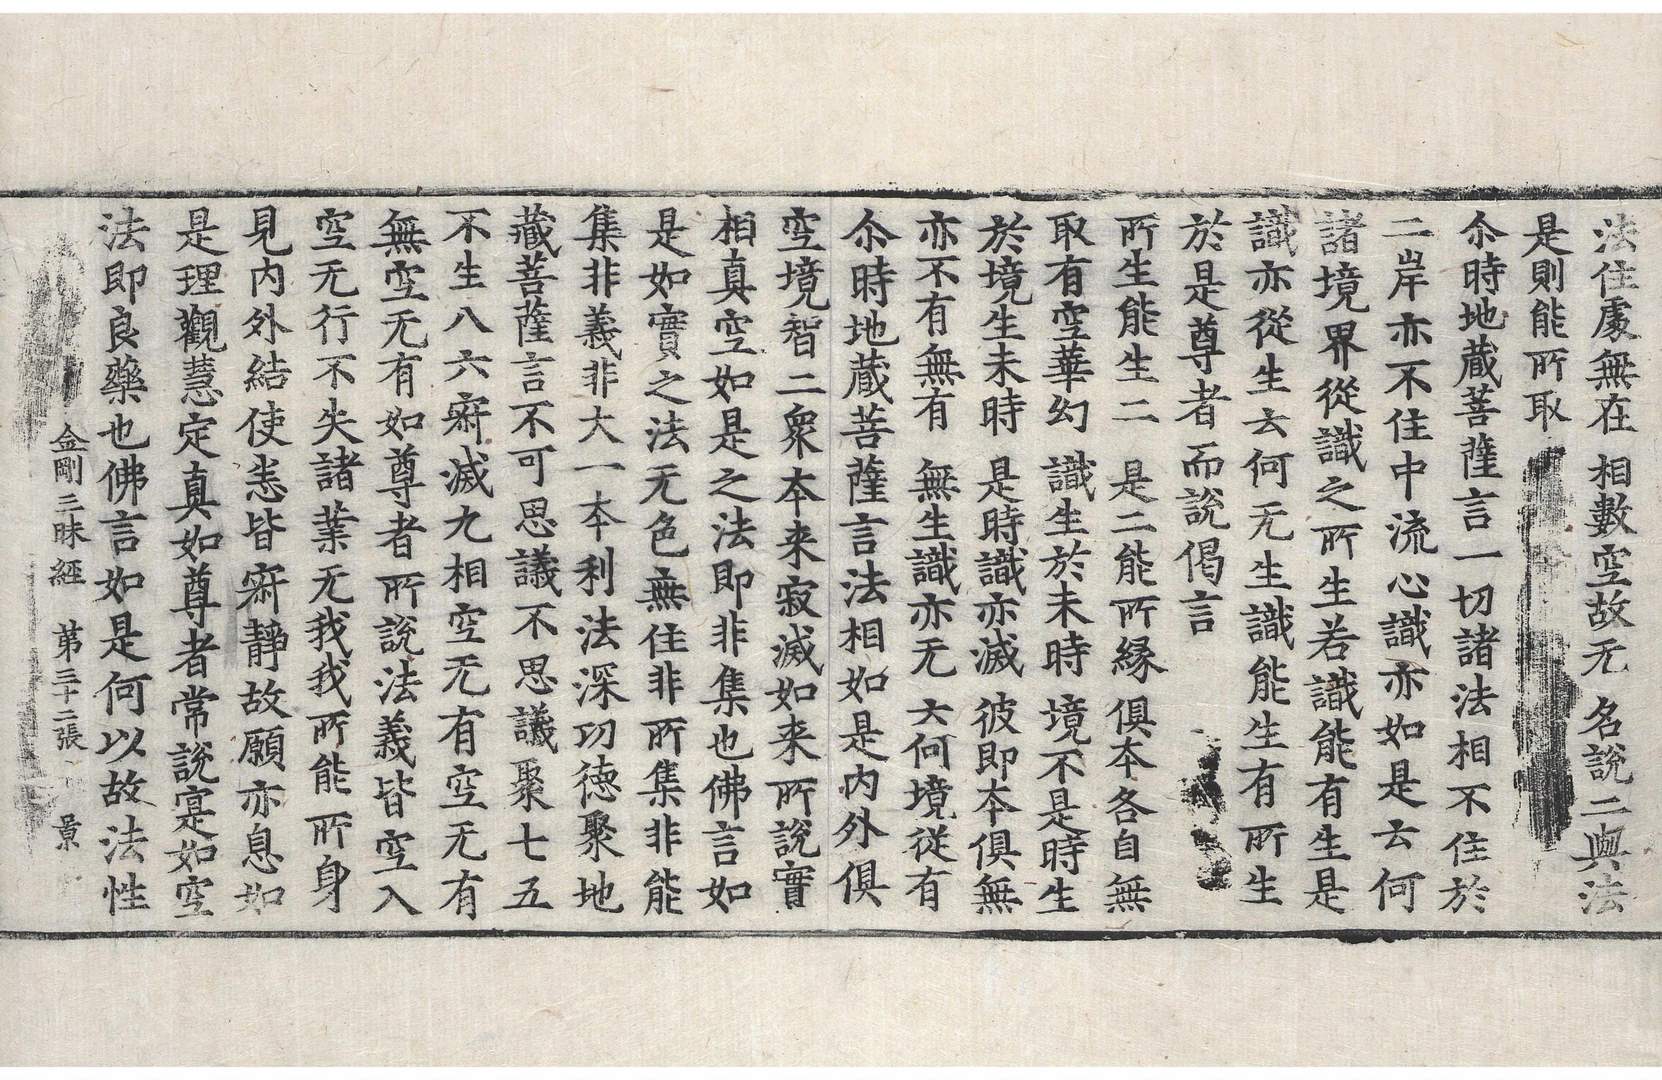 法住處無在 相數空故无 名說二與法
是則能所取
尒時地蔵菩薩言一切諸法相不住於
二岸亦不住中流心識亦如是云何
諸境界從識之所生若識能有生是
識亦從生云何无生識能生有所生
於是尊者而說偈言
所生能生二 是二能所縁 俱本各自無
取有空華幻 識生於未時 境不是時生
於境生未時 是時識亦滅 彼即本俱無
亦不有無有 無生識亦无 云何境從有
尒時地蔵菩薩言法相如是内外俱
空境智二衆本来寂滅如来所說實
相真空如是之法即非集也佛言如
是如實之法无色無住非所集非能
集非義非大一本利法深功德聚地
藏菩薩言不可思議不思議聚七五
不生八六㝛滅九相空无有空无有
無空无有如尊者所說法義皆空入
空无行不失諸業无我我所能所身
見内外結使悉皆㝛静故願亦息如
是理觀慧定真如尊者常說寔如空
法即良藥也佛言如是何以故法性
金剛三昧經 第三十二張 景